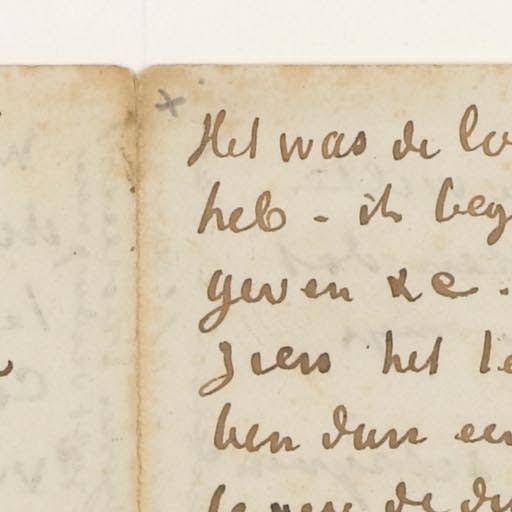 Het was de lo
heb - ik beg
geven &c.
zien het le
ben dan een